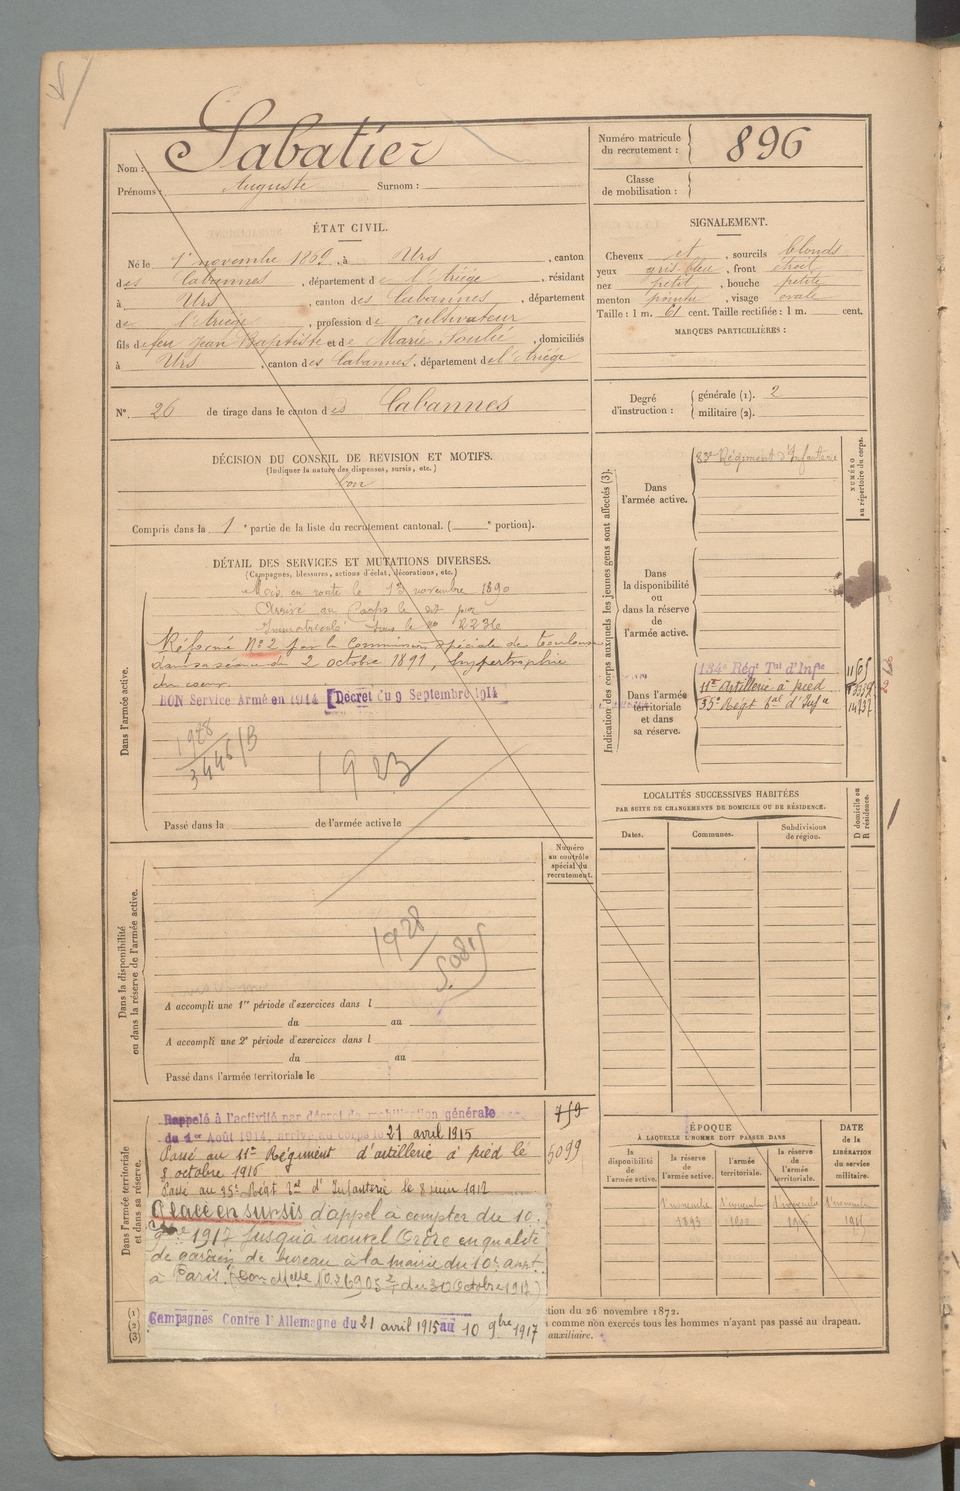 Nom : Sabatier
Prénoms : Auguste Surnom :
Numéro matricule du recrutement : 896
Classe de mobilisation :
ÉTAT CIVIL.
Né le 1er novembre 1869, à Urs, canton
des Cabannes, département de l'Ariège, résidant
à Urs, canton des Cabannes, département
de l'Ariège, profession de cultivateur
fils de feu Jean Baptiste et de Marie Soulié, domiciliés
à Urs, canton des Cabannes, département de l'Ariège
N°. 26 de tirage dans le canton des Cabannes
SIGNALEMENT.
Cheveux et, sourcils blonds
yeux gris-bleu, front étroit
nez petit, bouche petite
menton pointu, visage ovale
Taille : 1 m. 61 cent. Taille rectifiée : 1 m. cent.
MARQUES PARTICULIÈRES :
Degré d'instruction : générale (1). 2
militaire (2).
DÉCISION DU CONSEIL DE REVISION ET MOTIFS.
(Indiquer la nature des dispenses, sursis, etc.)
bon
Compris dans la 1e partie de la liste du recrutement cantonal. ( e portion).
DÉTAIL DES SERVICES ET MUTATIONS DIVERSES.
(Campagnes, blessures, actions d'éclat, décorations, etc.)
Dans l'armée active.
Mis en route le 13 novembre 1890
Arrivé au Corps le dit jour
Immatriculé sous le no 2236
Réformé No 2 par la Commission spéciale de Toulouse
dans sa séance du 2 octobre 1891, hypertrophie
du coeur.
BON Service Armé en 1914 Décret du 9 Septembre 1914
1928
3446/B
1923
Passé dans la de l'armée active le
Indication des corps auxquels les jeunes gens sont affectés (3).
NUMÉRO au répertoire du corps.
Dans l'armée active.
83e Régiment d'Infanterie
Dans la disponibilité ou dans la réserve de l'armée active.
Dans l'armée territoriale et dans sa réserve.
134e Régt Tal d'Infie
11e Artillerie à pied
35e Régt Tal d'Infie
14737
LOCALITÉS SUCCESSIVES HABITÉES
PAR SUITE DE CHANGEMENTS DE DOMICILE OU DE RÉSIDENCE.
Dates. Communes. Subdivisions de région. D domicile ou R résidence.
Numéro au contrôle spécial du recrutement.
Dans la disponibilité ou dans la réserve de l'armée active.
1928
A accompli une 1re période d'exercices dans l
du au
A accompli une 2e période d'exercices dans l
du au
Passé dans l'armée territoriale le
Dans l'armée territoriale et dans sa réserve.
Rappelé à l'activité par décret de mobilisation générale
du 1er Août 1914, arrivé au corps le 21 avril 1915
Passé au 11e Régiment d'artillerie à pied le
8 octobre 1916
Passé au 35e Régt Tal d'Infanterie le 8 juin 1917
Placé en sursis d'appel à compter du 10
9bre 1917 jusqu'à nouvel Ordre en qualité
de garçon de bureau à la mairie du 10e arrt
à Paris.
Campagnes Contre l'Allemagne du 21 avril 1915 au 10 9bre 1917
759
5099
ÉPOQUE
À LAQUELLE L'HOMME DOIT PASSER DANS
la disponibilité de l'armée active.
la réserve de l'armée active.
l'armée territoriale.
la réserve de l'armée territoriale.
DATE de la LIBÉRATION du service militaire.
1er novembre 1893
1er novembre 1900
1er novembre
1er novembre 1915
(1)
(2)
(3)
tion du 26 novembre 1872.
comme non exercés tous les hommes n'ayant pas passé au drapeau.
auxiliaire.